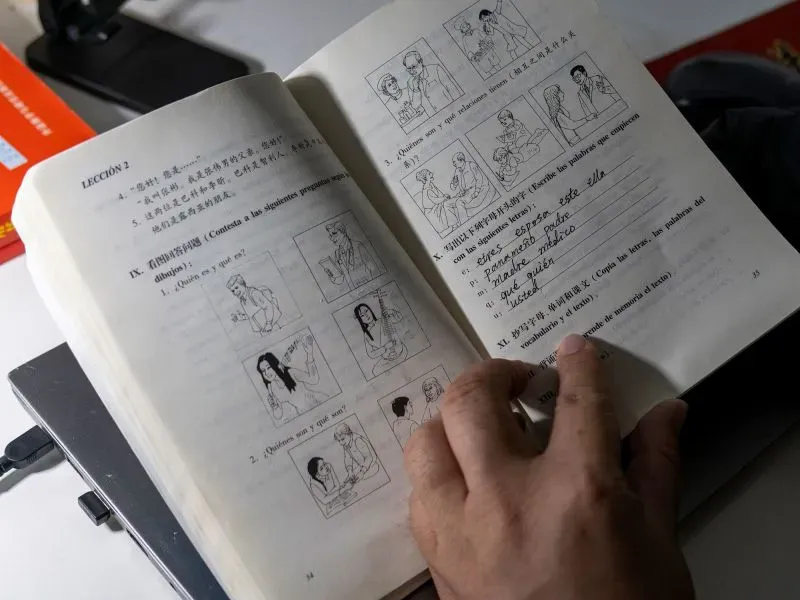 LECCIÓN 2
4. “您好！您是……”
“我叫张彬，我是张伟男的父亲，您好！”
5. 这两位是巴科和李昕，巴科是智利人，
他们是露西亚的朋友。
IX. 看图回答问题 (Contesta a las siguientes preguntas según
dibujos):
1. ¿Quién es y qué es?
2. ¿Quiénes son y qué son?
34
3. ¿Quiénes son y qué relaciones tienen (相互之间是什么关
系)?
X. 写出以下列字母开头的字 (Escribe las palabras que empiecen
con las siguientes letras):
e: eres esposa este ella
p: panameño padre
m: madre médico
q: qué quién
u: usted
XI. 抄写字母、单词和课文 (Copia las letras, las palabras del
vocabulario y el texto).
prende de memoria el texto).
XIII.
35